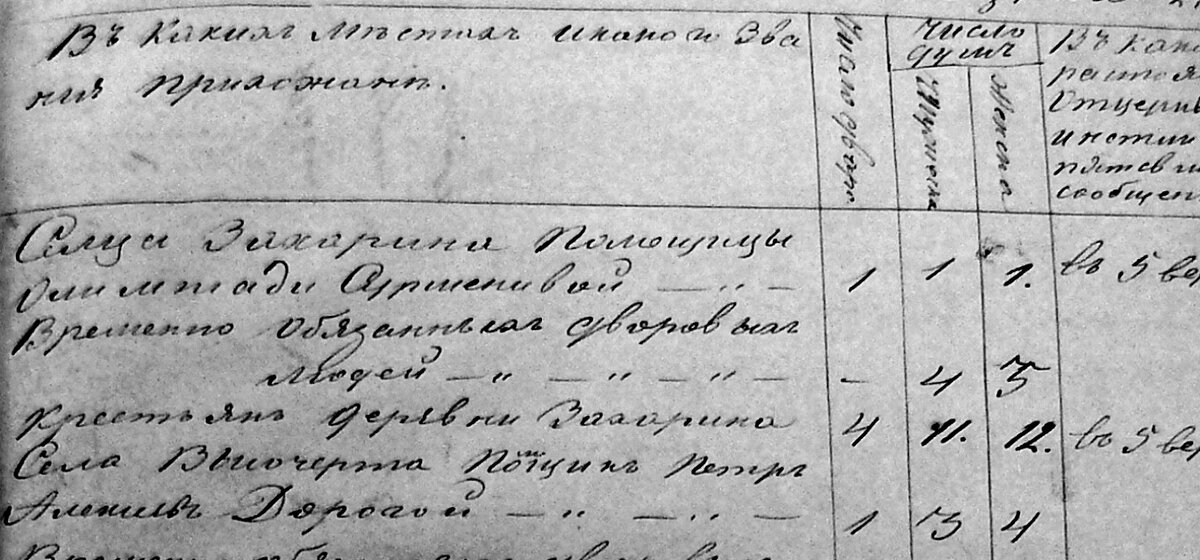 Въ Какихъ мѣстахъ и какого Зва
нія прихожанъ.
Число дворъ
Число
душъ
Мужеска
Женска
Въ како
растоя
Отцеркв
и нѣтъ ли
пятсвiи
сообщен
Сельца Захарина Помѣщицы
Олимпiади — „ — 1 1 1. въ 5 вер
Временно обязанныхъ дворовыхъ
людей — „ — „ — „ — — 4 5
крестьянъ деревни Захарина 4 11. 12. въ 5 вер
Села Высочерта Пощикъ Петръ
Алексѣевъ Дорогой — „ — „ — 1 3 4